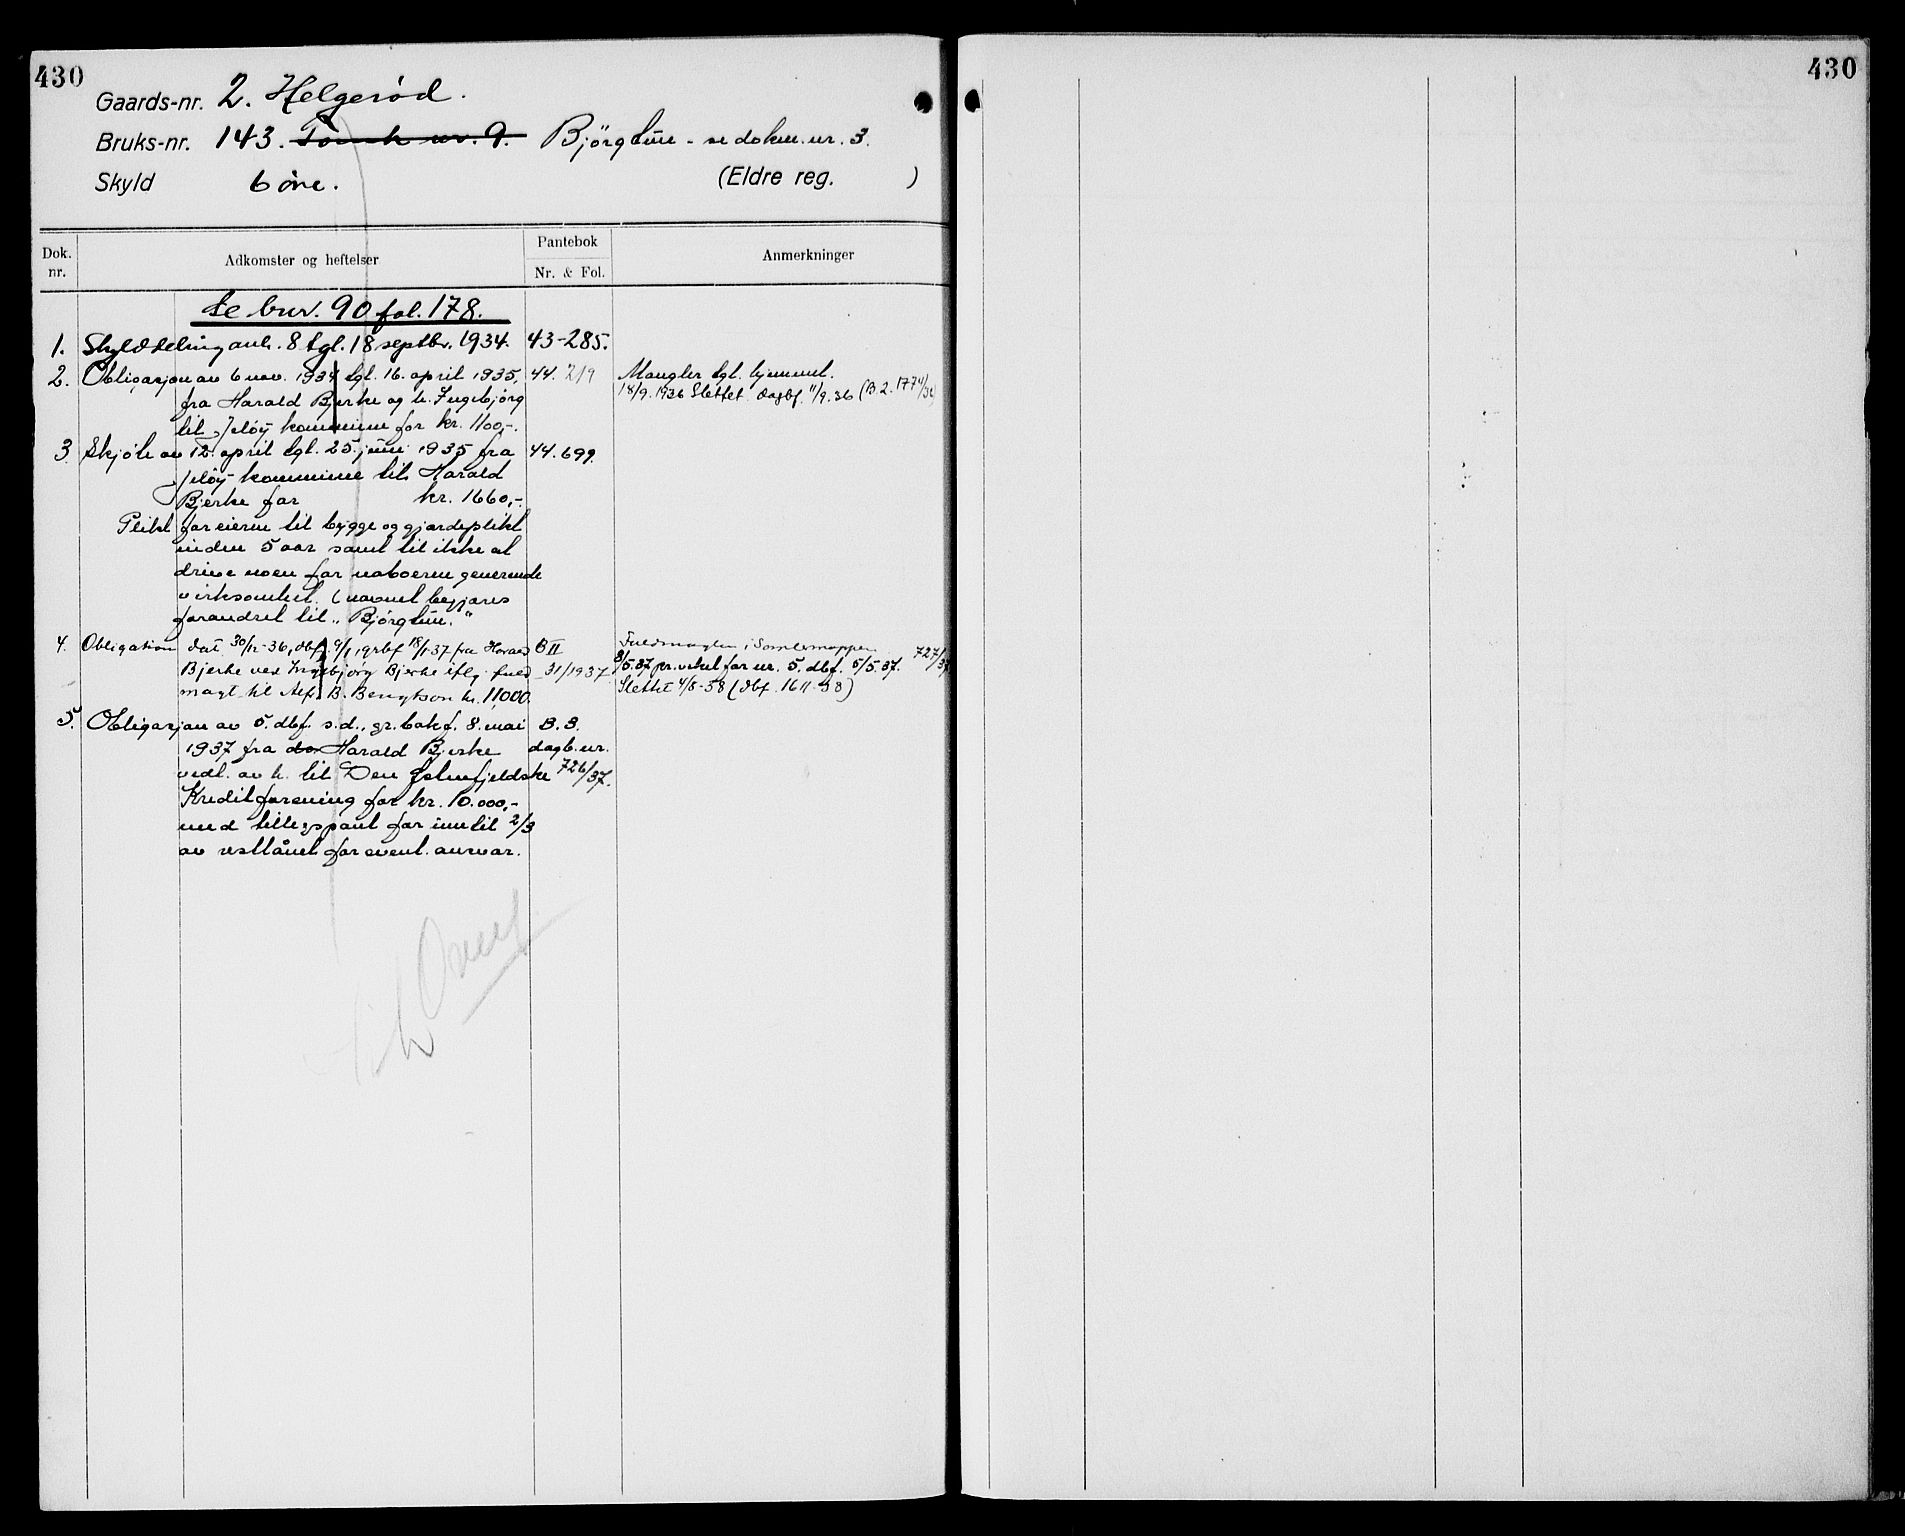 430
430
Gaards-nr. 2. Helgerød.
Bruks-nr. 143. Tomt nr. 9. Bjørgtun - se dokm. nr. 3.
Skyld 6 øre. (Eldre reg. )
Dok. nr.
Adkomster og heftelser
Pantebok
Nr. & Fol.
Anmerkninger
Se brnr. 90 fol. 178.
1. Skylddeling avh. 8 tgl. 18 septbr. 1934. 43-285.
2. Obligasjon av 6 nov. 1934 tgl. 16. april 1935, 44. 219 Mangler tgl. hjemmel.
fra Harald Bjerke og h. Ingebjörg 18/9. 1936 Slettet. dagbf. 11/9. 36 (B.2. 1774/36)
til Jeløy kommune for kr. 1100,-.
3. Skjøte av 12. april tgl. 25. juni 1935 fra 44. 699.
Jeløy kommune til Harald
Bjerke for kr. 1660,-.
Plikt for eieren til bygge og gjærdeplikt
inden 5 aar samt til ikke at
drive noen for naboerne generende
virksomhet. (navnet begjæres
forandret til "Björgtun."
4. Obligation dat. 30/12-36, dbf. 9/1, grbf 18/1-37 fra Harald B II
Bjerke ved Ingebjørg Bjerke iflg. fuld 31/1937
magt til Alf. B. Bengtson kr. 11000.
Fuldmagten i Samlemappen
8/5.37 pr. vekel for nr. 5. dbf. 5/5.37. 727/37
Slettet 4/8-58 (dbf. 1611-58)
5. Obligasjon av 5. dbf. s.d., gr.bokf. 8. mai B. 3.
1937 fra do. Harald Bjerke dagb. nr.
vedt. av h. til Den Østenfjeldske 726/37.
Kreditforening for kr. 10.000,-
med tilleggspant for inntil 2/3
av restlånet for event. ansvar.